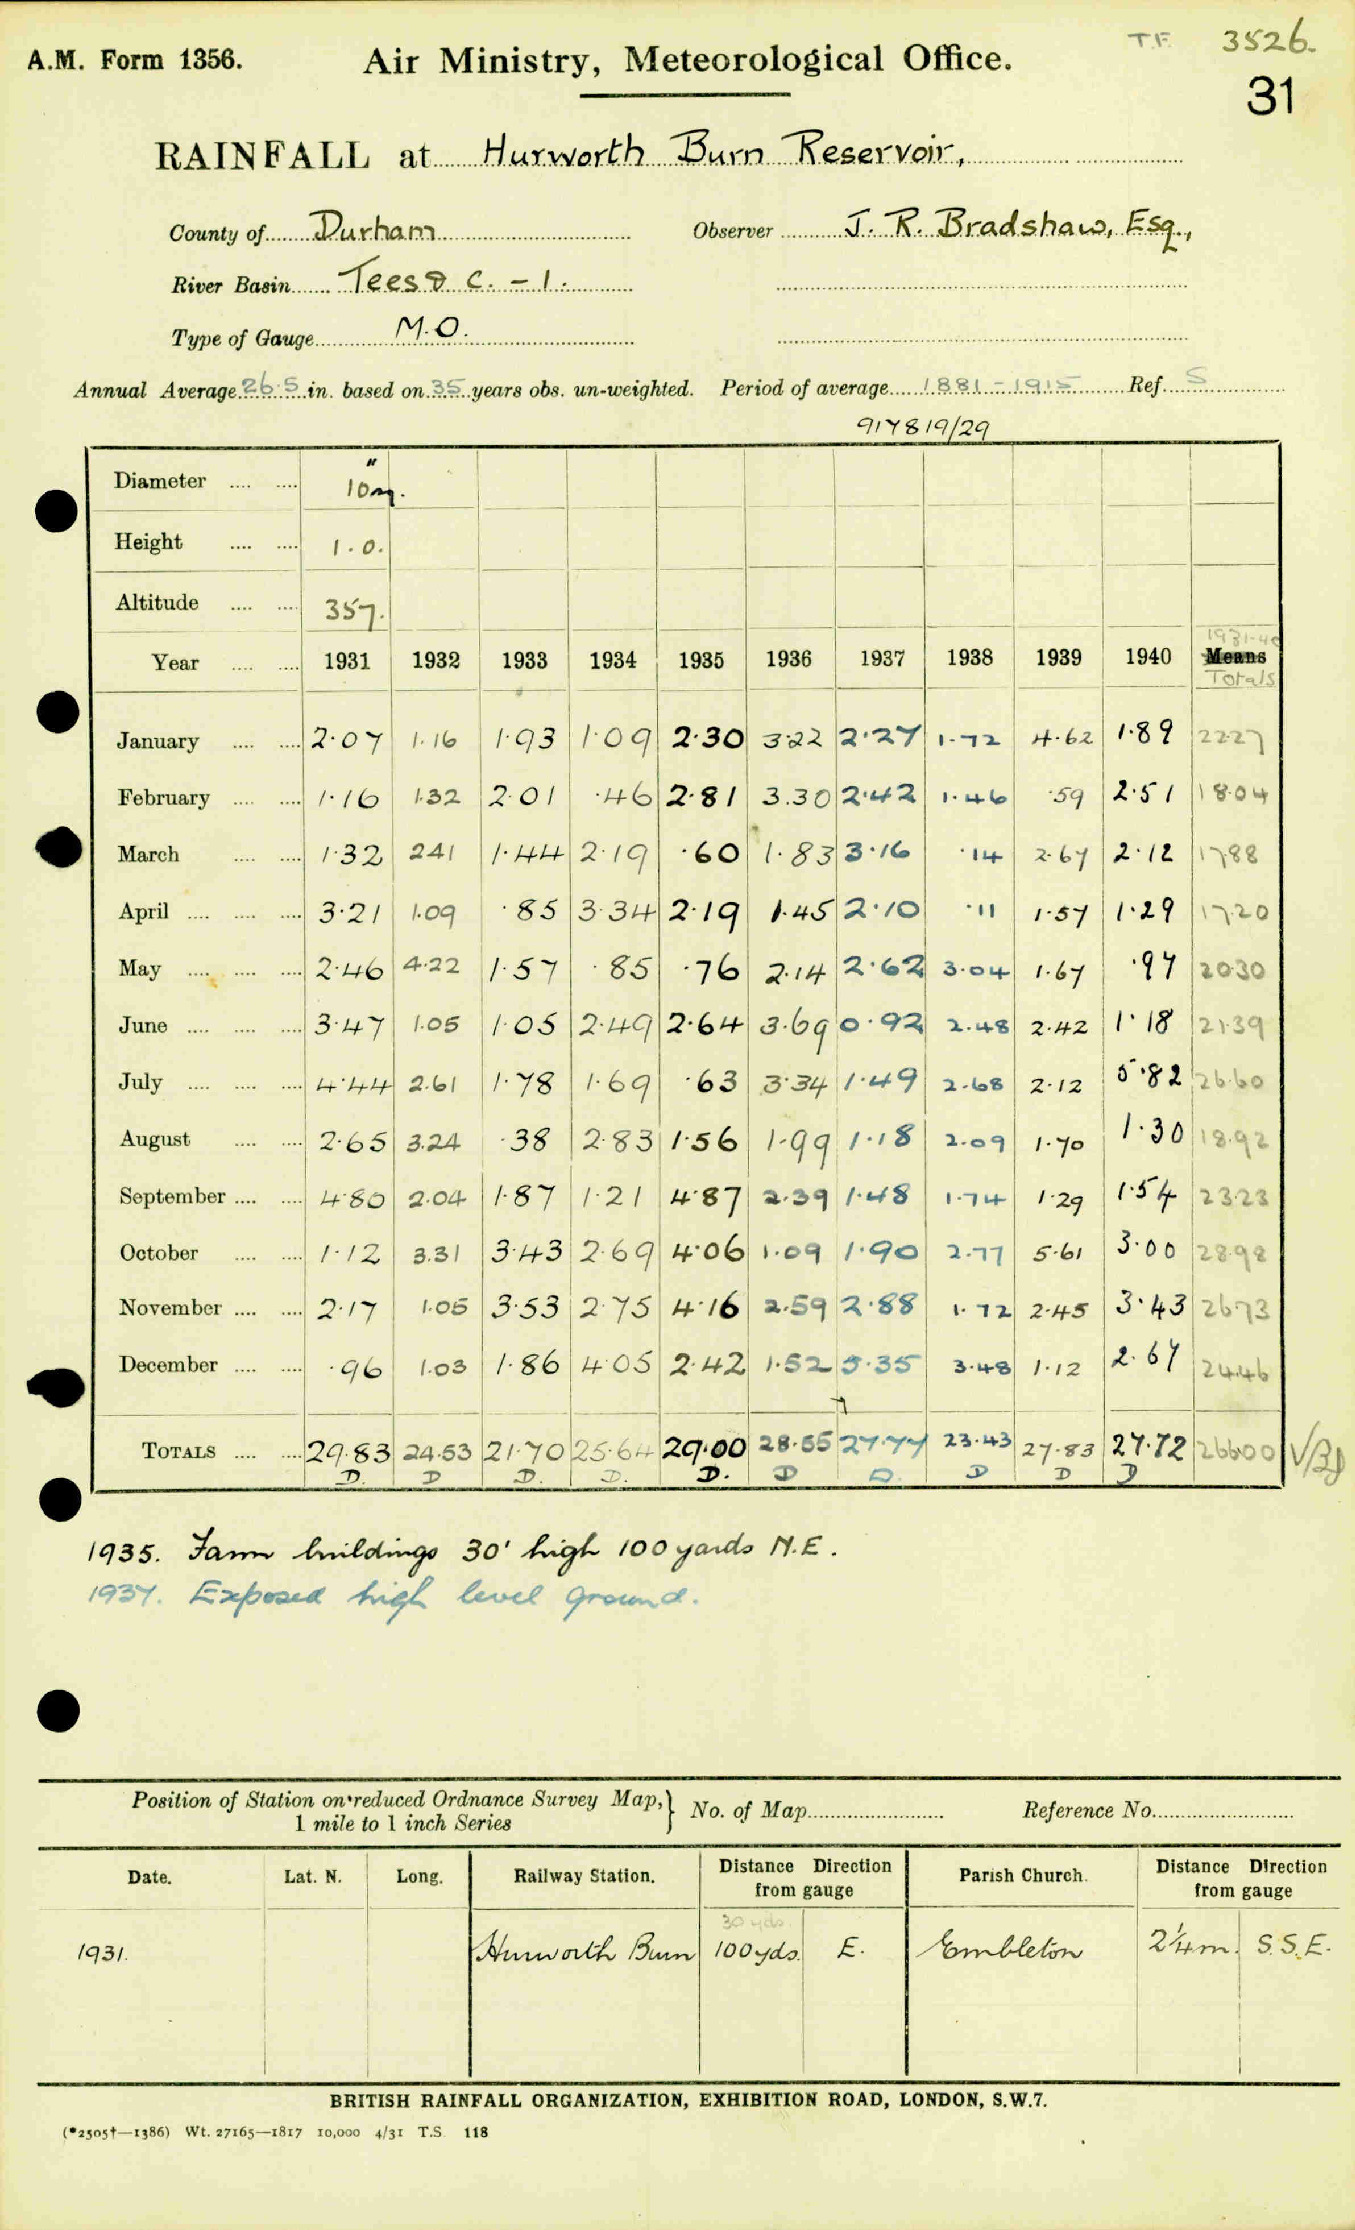 T.F. 3526.
A.M. Form 1356. Air Ministry, Meteorological Office.
31
RAINFALL at Hurworth Burn Reservoir,
County of Durham Observer J. R. Bradshaw, Esq.,
River Basin Tees & C. - 1.
Type of Gauge M.O.
Annual Average 26.5 in. based on 35 years obs. un-weighted. Period of average 1881-1915 Ref. S
917819/29
Diameter 10"
Height 1.0.
Altitude 357.
Year 1931 1932 1933 1934 1935 1936 1937 1938 1939 1940 1931-40 Means Totals
January 2.07 1.16 1.93 1.09 2.30 3.22 2.27 1.72 4.62 1.89 22.27
February 1.16 1.32 2.01 .46 2.81 3.30 2.42 1.46 .59 2.51 18.04
March 1.32 2.41 1.44 2.19 .60 1.83 3.16 .14 2.67 2.12 17.88
April 3.21 1.09 .85 3.34 2.19 1.45 2.10 .11 1.57 1.29 17.20
May 2.46 4.22 1.57 .85 .76 2.14 2.62 3.04 1.67 .97 20.30
June 3.47 1.05 1.05 2.49 2.64 3.69 0.92 2.48 2.42 1.18 21.39
July 4.44 2.61 1.78 1.69 .63 3.34 1.49 2.68 2.12 5.82 26.60
August 2.65 3.24 .38 2.83 1.56 1.99 1.18 2.09 1.70 1.30 18.92
September 4.80 2.04 1.87 1.21 4.87 2.39 1.48 1.74 1.29 1.54 23.23
October 1.12 3.31 3.43 2.69 4.06 1.09 1.90 2.77 5.61 3.00 28.98
November 2.17 1.05 3.53 2.75 4.16 2.59 2.88 1.72 2.45 3.43 26.73
December .96 1.03 1.86 4.05 2.42 1.52 5.35 3.48 1.12 2.67 24.46
TOTALS 29.83 24.53 21.70 25.64 29.00 28.55 27.77 23.43 27.83 27.72 266.00
D. D D. D. D. D D. D D D
1935. Farm buildings 30' high 100 yards N.E.
1937. Exposed high level ground.
Position of Station on reduced Ordnance Survey Map,
1 mile to 1 inch Series } No. of Map Reference No.
Date. Lat. N. Long. Railway Station. Distance Direction from gauge Parish Church. Distance Direction from gauge
30 yds.
1931. Hurworth Burn 100 yds. E. Embleton 2¼ m. S.S.E.
BRITISH RAINFALL ORGANIZATION, EXHIBITION ROAD, LONDON, S.W.7.
(*2505†—1386) Wt. 27165—1817 10,000 4/31 T.S. 118